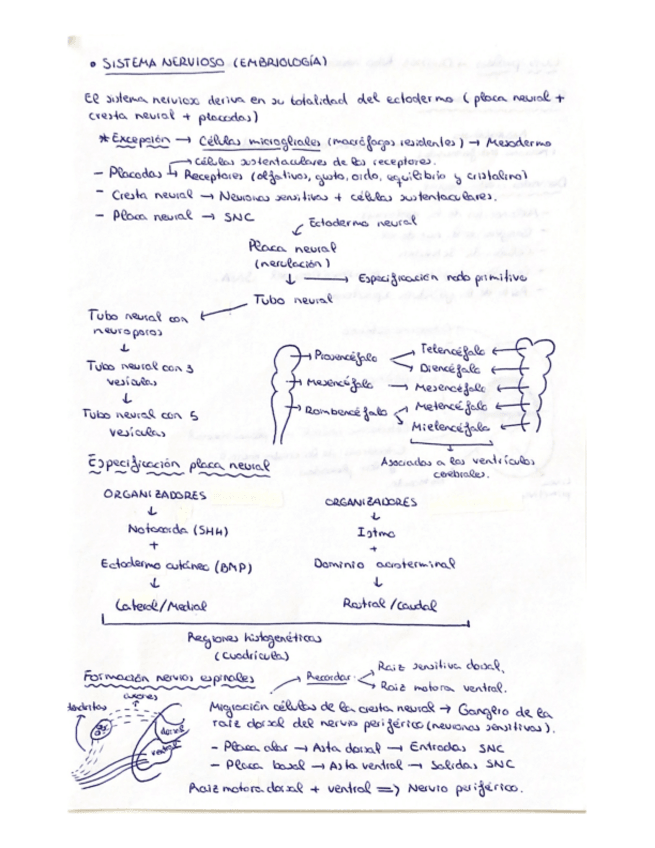 • SISTEMA NERVIOSO (EMBRIOLOGÍA)
El sistema nervioso deriva en su totalidad del ectodermo (placa neural +
cresta neural + placodas)
* Excepción → Células microgliales (macrófagos residentes) → Mesodermo
→ Células sustentaculares de los receptores.
- Placodas → Receptores (olfativos, gusto, oído, equilibrio y cristalino)
- Cresta neural → Neuronas sensitivas + células sustentaculares.
- Placa neural → SNC
Ectodermo neural
↓
Placa neural
(neurulación)
↓ → Especificación nodo primitivo
Tubo neural
Tubo neural con
neuroporos
↓
Tubo neural con 3
vesículas
↓
Tubo neural con 5
vesículas
Prosencéfalo
Mesencéfalo
Rombencéfalo
Telencéfalo
Diencéfalo
Mesencéfalo
Metencéfalo
Mielencéfalo
Asociados a los ventrículos
cerebrales.
Especificación placa neural
ORGANIZADORES
↓
Notocorda (SHH)
+
Ectodermo cutáneo (BMP)
↓
Lateral/Medial
ORGANIZADORES
↓
Istmo
+
Dominio acroterminal
↓
Rostral/Caudal
Regiones histogenéticas
(cuadrícula)
Formación nervios espinales
Recordar
Raíz sensitiva dorsal,
Raíz motora ventral.
axones
dendritas
dorsal
ventral
Migración células de la cresta neural → Ganglio de la
raíz dorsal del nervio periférico (neuronas sensitivas).
- Placa alar → Asta dorsal → Entradas SNC
- Placa basal → Asta ventral → Salidas SNC
Raíz motora dorsal + ventral => Nervio periférico.